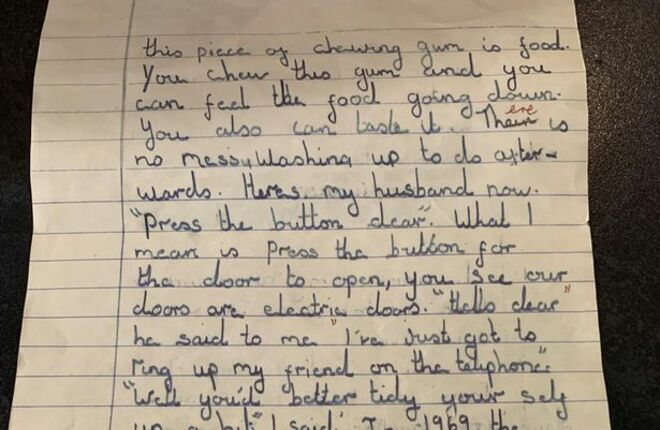 this piece of chewing gum is food.
You chew this gum and you
can feel the food going down.
You also can taste it. There is
no messy washing up to do after-
wards. Heres my husband now.
"Press the button dear". What I
mean is press the button for
the door to open, you see our
doors are electric doors. "Hello dear"
he said to me "I've Just got to
ring up my friend on the telephone".
"Well you'd better tidy your self
up a bit" I said. In 1969 the